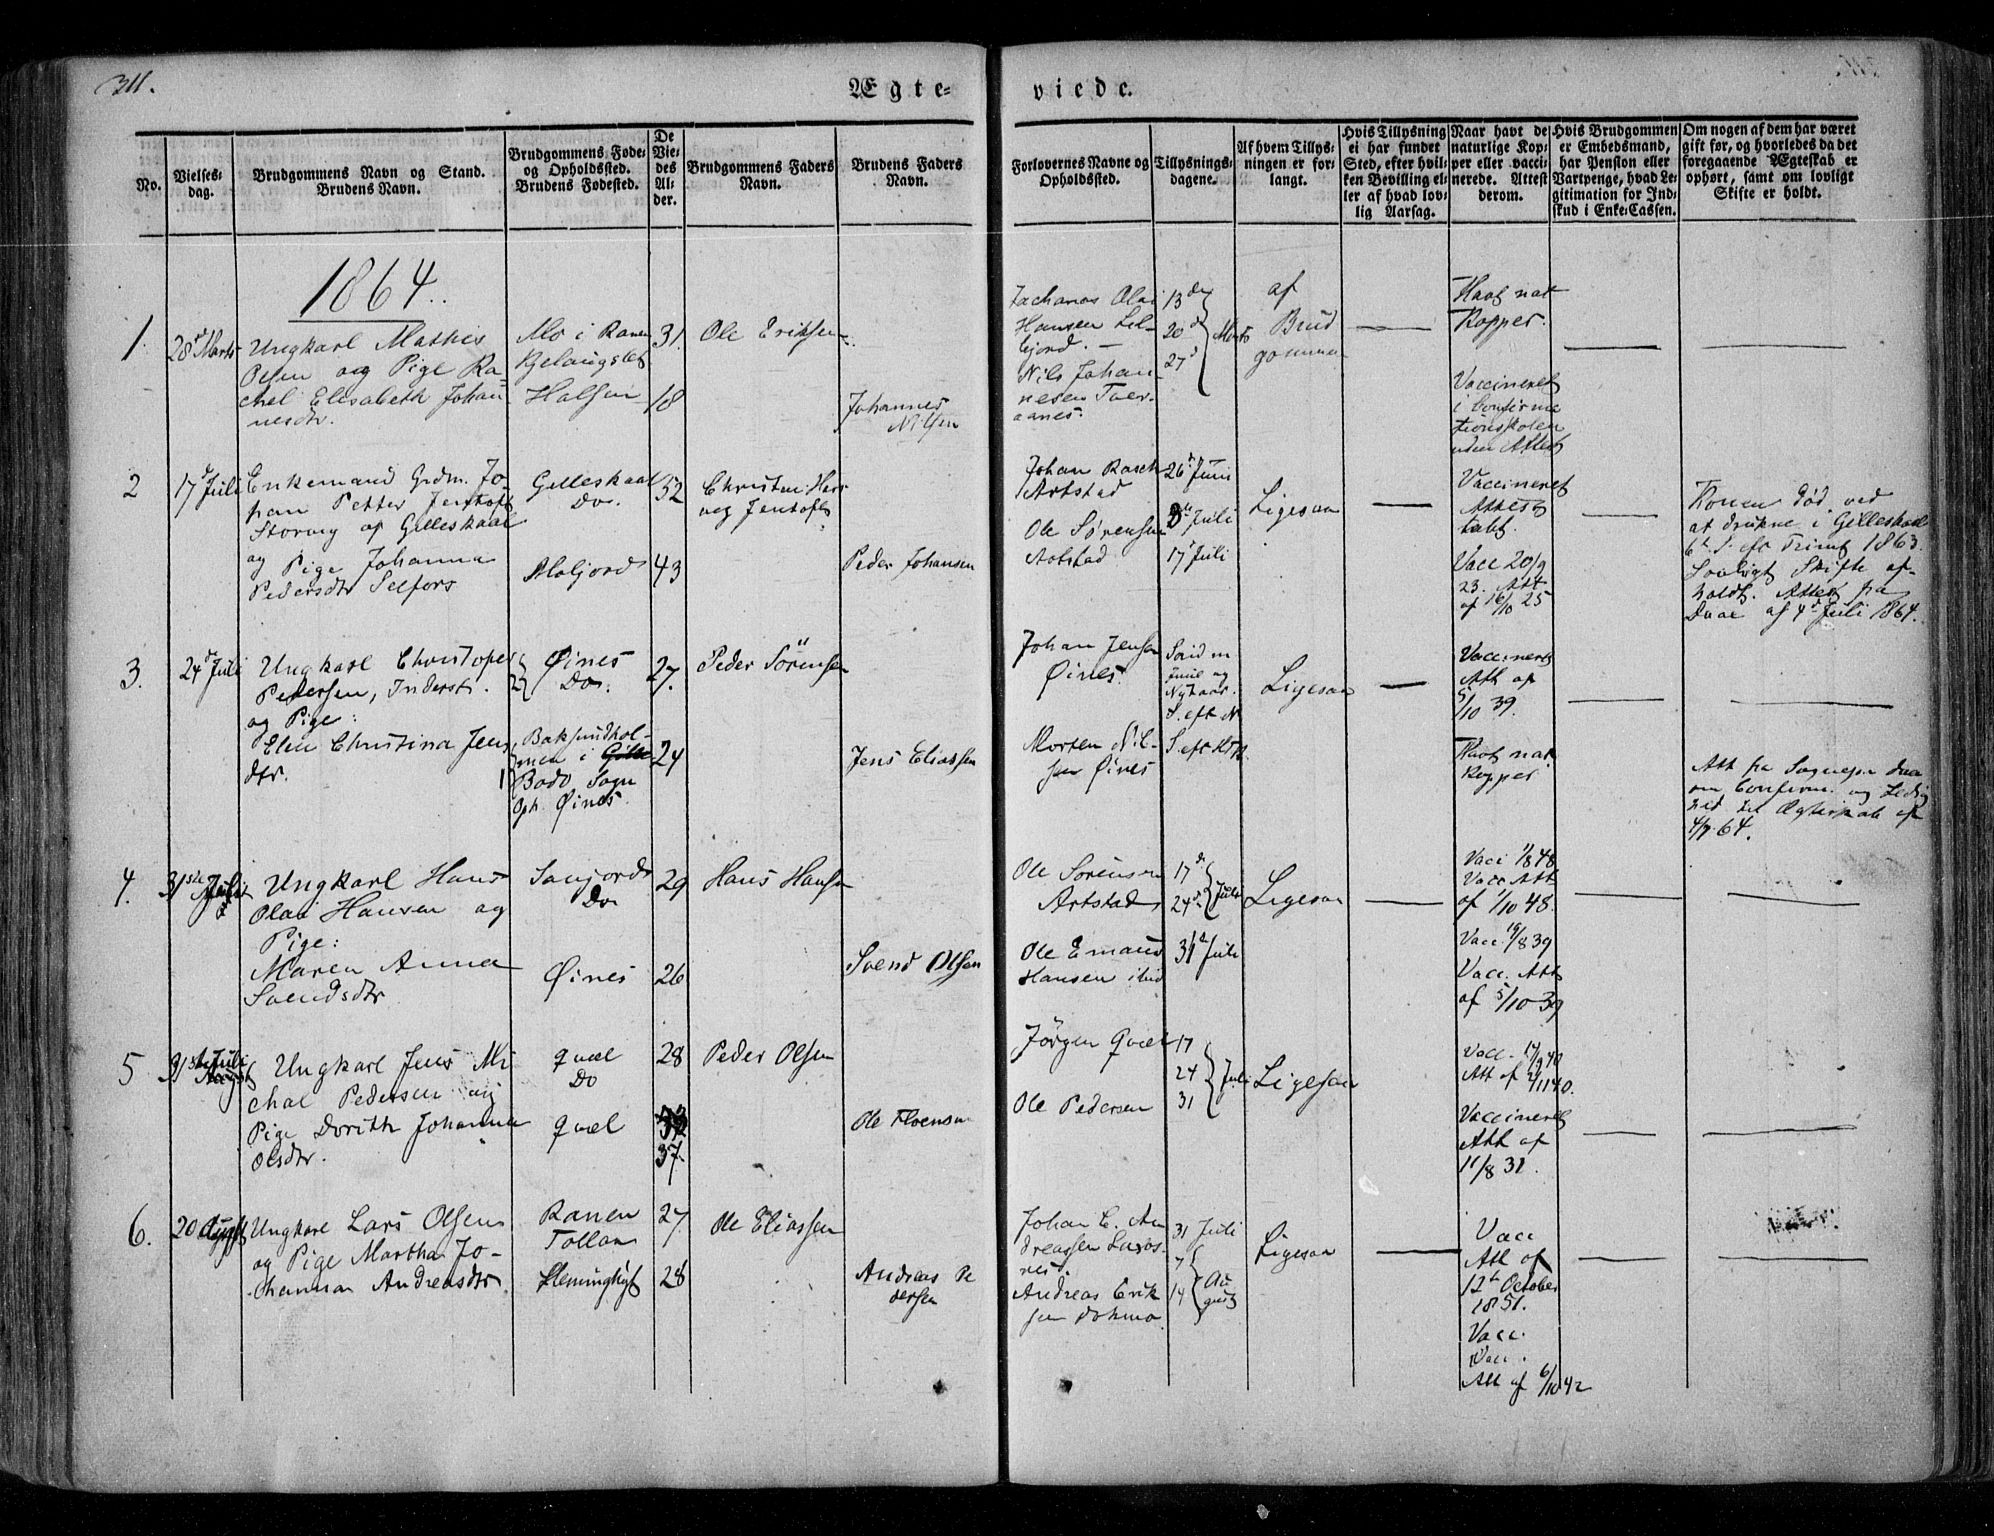 311.
Ægte=
viede.
No.
Vielses=
dag.
Brudgommens Navn og Stand.
Brudens Navn.
Brudgommens Føde=
og Opholdssted.
Brudens Fødested.
De
Vie=
des
Al=
der.
Brudgommens Faders
Navn.
Brudens Faders
Navn.
Forlovernes Navne og
Opholdssted.
Tillysnings=
dagene.
Af hvem Tillys=
ningen er for=
langt.
Hvis Tillysning
ei har fundet
Sted, efter hvil=
ken Bevilling el=
ler af hvad lov=
lig Aarsag.
Naar havt de
naturlige Kop=
per eller vacci=
nerede. Attest
derom.
Hvis Brudgommen
er Embedsmand,
har Pension eller
Vartpenge, hvad Le=
gitimation for Ind=
skud i Enke=Cassen.
Om nogen af dem har været
gift før, og hvorledes da det
foregaaende Ægteskab er
ophørt, samt om lovligt
Skifte er holdt.
1864.
1.
28d Marts
Ungkarl Mathis
Olsen og Pige Ra=
chel Elisabeth Johan
nesdtr.
Mo i Ranen
Halsen
31.
18
Ole Eriksen
Johannes
Nilsen
Zacharias Olai
Hansen Lil=
Nils Johan=
nesen
13de
20d
27d
Marts
af
Brud
gommen
Havt nat
Kopper.
Vaccineret
i Confirma
tionsskolen
uden Attest
2
17d Juli
Enkemand Grdm. Jo=
han Petter Jentoft
Storvig af Gilleskaal
og Pige Johanna
Pedersdtr Selfors
Gilleskaal
Do.
52
43
Christen Har
veg Jentoft
Peder Johansen
Johan Rasch
Artstad
Ole Sørensen
Artstad
26d Juni
3d Juli
17d Juli
Ligesaa
Vaccineret
Attest
tabt.
Vacc 20/9
23. Att
af 16/10 25
Konen død ved
at drukne i Gilleskaal
6t S. eft Trinit 1863.
Lovligt Skifte af=
holdt. Attest fra
Daae af 4d Juli 1864.
3.
24de Juli
Ungkarl Christopher
Pedersen, Inderst.
og Pige:
Elen Christina Jens
dtr.
2
Øines
Do.
1
Baksundhol=
men i
Bodø Sogn
Oph. Øines.
27.
24
Peder Sörensen
Jens Eliassen
Johan Jensen
Øines.
Morten Nil=
sen Øines
Nytaar.
S. eft N
Ligesaa
Vaccineret
Att af
5/10 39.
Havt nat
Kopper
Att fra Sognepr. Daae
om Confirm. og Ledig
hed til Ægteskab af
4/7 64.
4.
31ste Juli
Ungkarl Hans
Olai Hansen og
Pige:
Maren Anna
Svendsdtr
Do
Øines
29
26
Hans Hansen
Svend Olsen
Ole Sörensen
Artstad
Ole Emanuel
Hansen ibid
17de
24d
Juli
31d Juli
Ligesaa
Vacc 1/8 48
Vacc Att
af 1/10 48.
Vacc. 19/8 39
Vacc. Att
af 5/10 39
5
31ste Juli
Ungkarl Jens Mi
chal Pedersen og
Pige Dorith Johanna
Olsdtr.
Qvæl
Do
Qvæl
28
37.
Peder Olsen
Ole Floensen
Jørgen Qvæl
Ole Pedersen
17
24
31
Juli
Ligesaa
Vacc. 17/9 40
Att af 2/11 40.
Vaccineret
Att af
11/8 31.
6.
20 August
Ungkarl Lars Olsen
og Pige Martha Jo=
hannan Andreasdtr.
Ranen
Tollaa
27
28
Ole Eliassen
Andreas Pe
dersen
Johan C. An
dreassen
Andreas Erik
sen
31 Juli
7
14
Au
gust
Ligesaa
Vacc
Att af
12te October
1851.
Vacc.
Vacc.
Att af 6/10 42